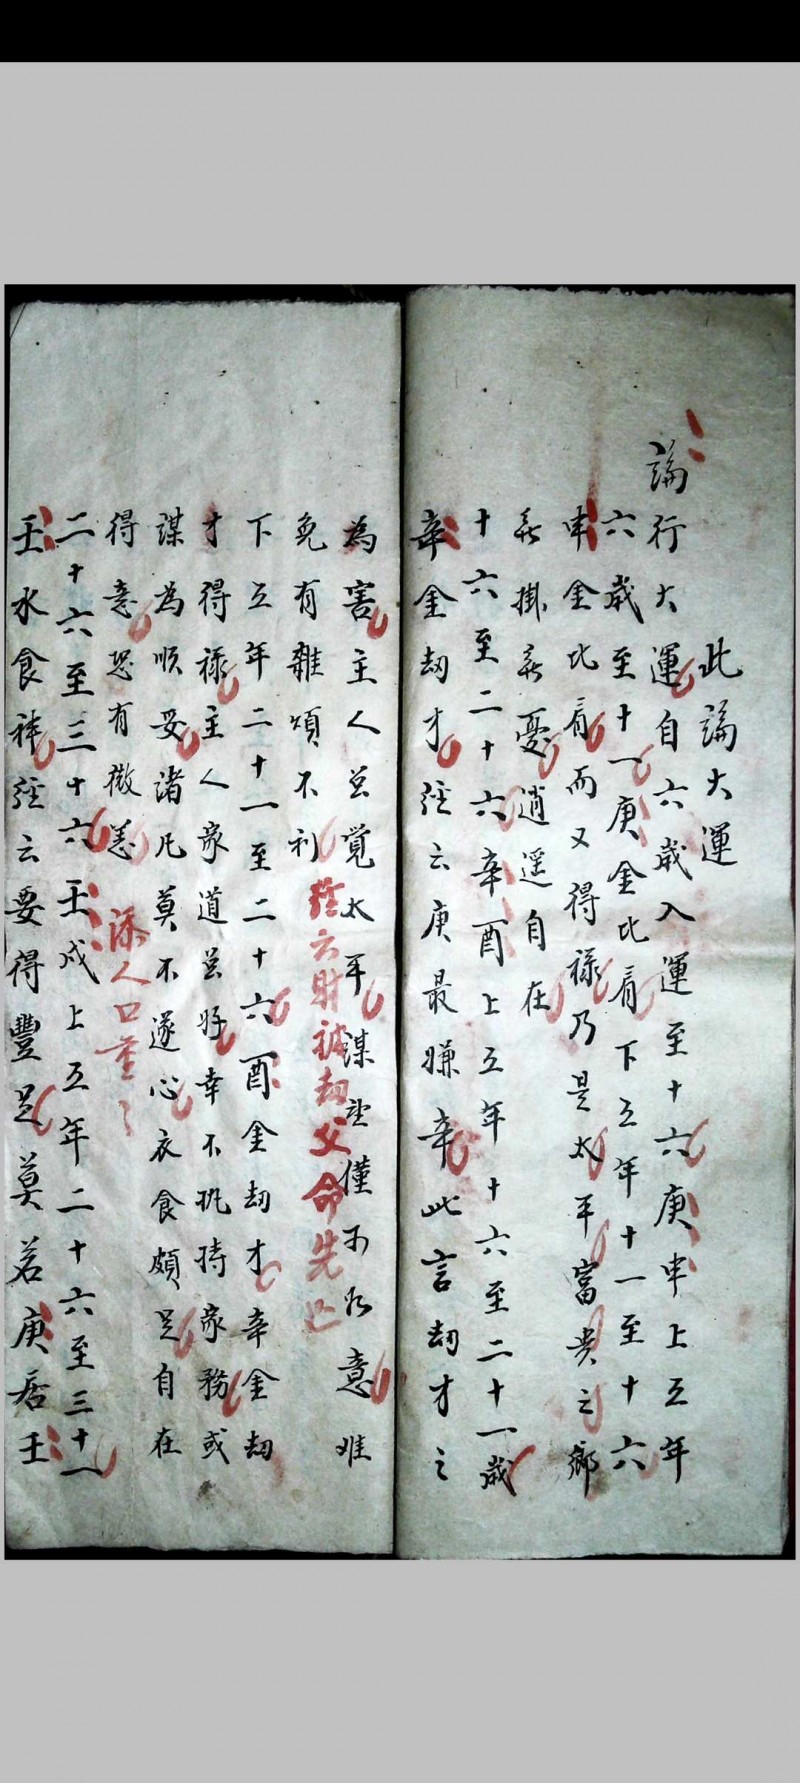 此論大運
論行大運自六歲入運至十六庚申上五年
六歲至十一庚金比肩下五年十一至十六
申金比肩而又得祿乃是太平富貴之鄉
無掛無憂逍遥自在
十六至二十六辛酉上五年十六至二十一歲
辛金刧才經云庚最嫌辛此言刧才之
為害主人总覚太平謀望僅可如意难
免有雜煩不利
經云財被劫父命先亡
下五年二十一至二十六酉金刧才辛金刧
才得祿主人家道总好幸不執持家務或
謀為順妥諸凡莫不遂心衣食頗足自在
得意恐有微恙
添人口重〻
二十六至三十六壬戌上五年二十六至三十一
壬水食神經云要得豐足莫若庚居壬